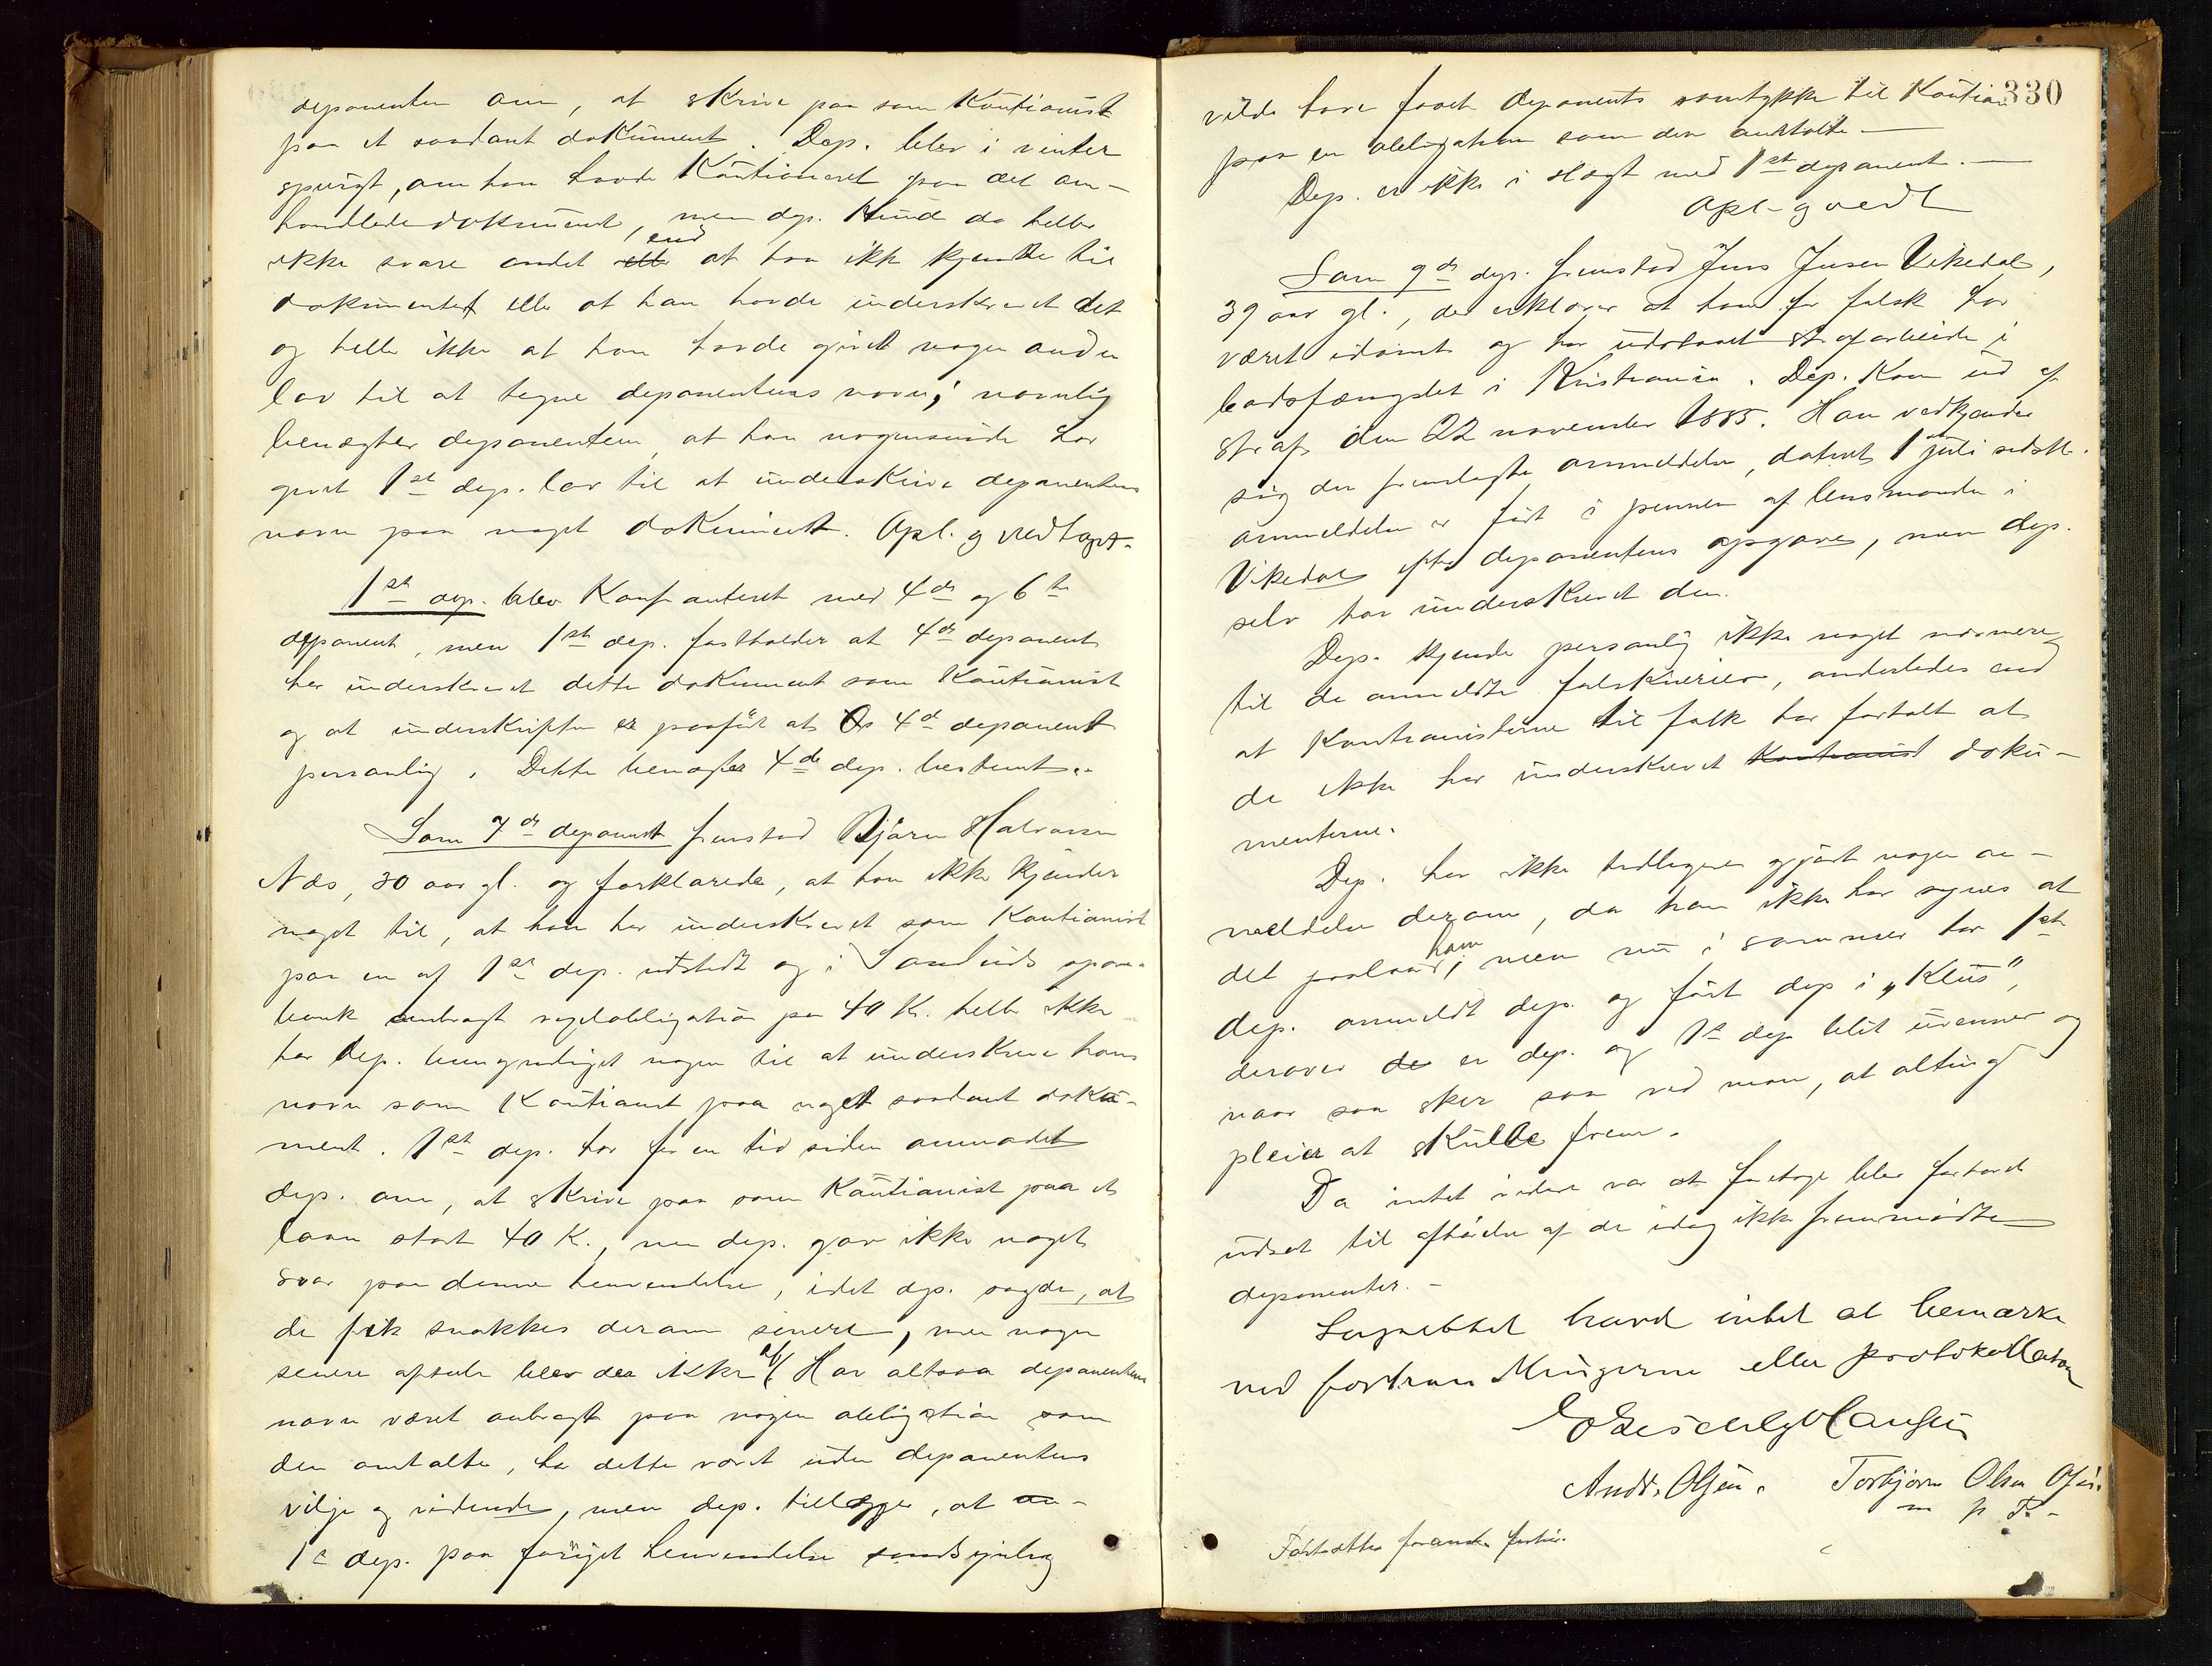 deponenten om, at skrive paa som Kautionist
paa et saadant dokument. Dep. blev i vinter
spurgt, om han havde Kautioneret paa det om-
handlede dokument, men dep. Kunde da heller
ikke svare andet end at han ikke kjendte til
dokumentet eller at han havde underskrevet det
og heller ikke at han havde givet nogen anden
lov til at tegne deponentens navn; navnlig
benægter deponenten, at han nogensinde har
givet 1ste dep. lov til at underskrive deponentens
navn paa noget dokument. Opl. og vedtaget.
1ste dep. blev Konfronteret med 4de og 6te
deponent, men 1ste dep. fastholder at 4de deponent
har underskrevet dette dokument som Kautionist
og at underskriften er paaført af 4de deponent
personlig. Dette benægter 4de dep. bestemt.
Som 7de deponent fremstod Bjørn Halvorsen
Næs, 30 aar gl. og forklarede, at han ikke kjender
noget til, at han har underskrevet som Kautionist
paa en af 1ste dep. udstedt og i Sandeids spare-
bank anbragt vexelobligation paa 40 Kr. heller ikke
har dep. bemyndiget nogen til at underskrive hans
navn som Kautionist paa noget saadant doku-
ment. 1ste dep. har for en tid siden anmodet
dep. om, at skrive paa som Kautionist paa et
laan stort 40 K., men dep. gav ikke noget
svar paa denne henvendelse, idet dep. sagde, at
de fik snakkes derom senere, men nogen
senere aftale blev der ikke af. Har altsaa deponentens
navn været anbragt paa nogen obligation som
den omtalte, har dette været uden deponentens
vilje og vidende, men dep. tillægger, at
1ste dep. paa forøget henvendelse sandsynlig
330
vilde have faaet deponents samtykke til Kaution
paa en obligation som den omtalte.
Dep. er ikke i slægt med 1ste deponent.
Opl. og vedt
Som 9de dep. fremstod Jens Jensen Vikedal,
39 aar gl., der erklærer at han for falsk har
været idømt og har udstaaet strafarbeide i
bodsfængslet i Kristiania. Dep. Kom ud af
straf den 22 november 1885. Han vedkjender
sig den fremlagte anmeldelse, dateret 1 juli sidstl.
anmeldelsen er ført i pennen af lensmanden i
Vikedal efter deponentens opgave, men dep.
selv har underskrevet den.
Dep. kjender personlig ikke noget nærmere
til de anmeldte falsknerier, anderledes end
at Kautionisterne til folk har fortalt at
de ikke har underskrevet Kautionist doku-
menterne.
Dep. har ikke tidligere gjort nogen an-
meldelse derom, da han ikke har synes at
det paalaa ham, men nu i sommer har 1ste
dep. anmeldt dep. og ført dep i "Klus",
derover er dep. og 1ste dep blit uvenner og
naar saa sker saa ved man, at alting
pleier at skulle frem.
Da intet videre var at foretage blev forhøret
udsat til afhørelse af de idag ikke fremmødte
deponenter.
Lagrettet havde intet at bemærke
ved forhandlingerne eller protokollationen
Andr. Olsen. Torbjørn Olsen
m p P.
Fortsættes foranstr. forhør.